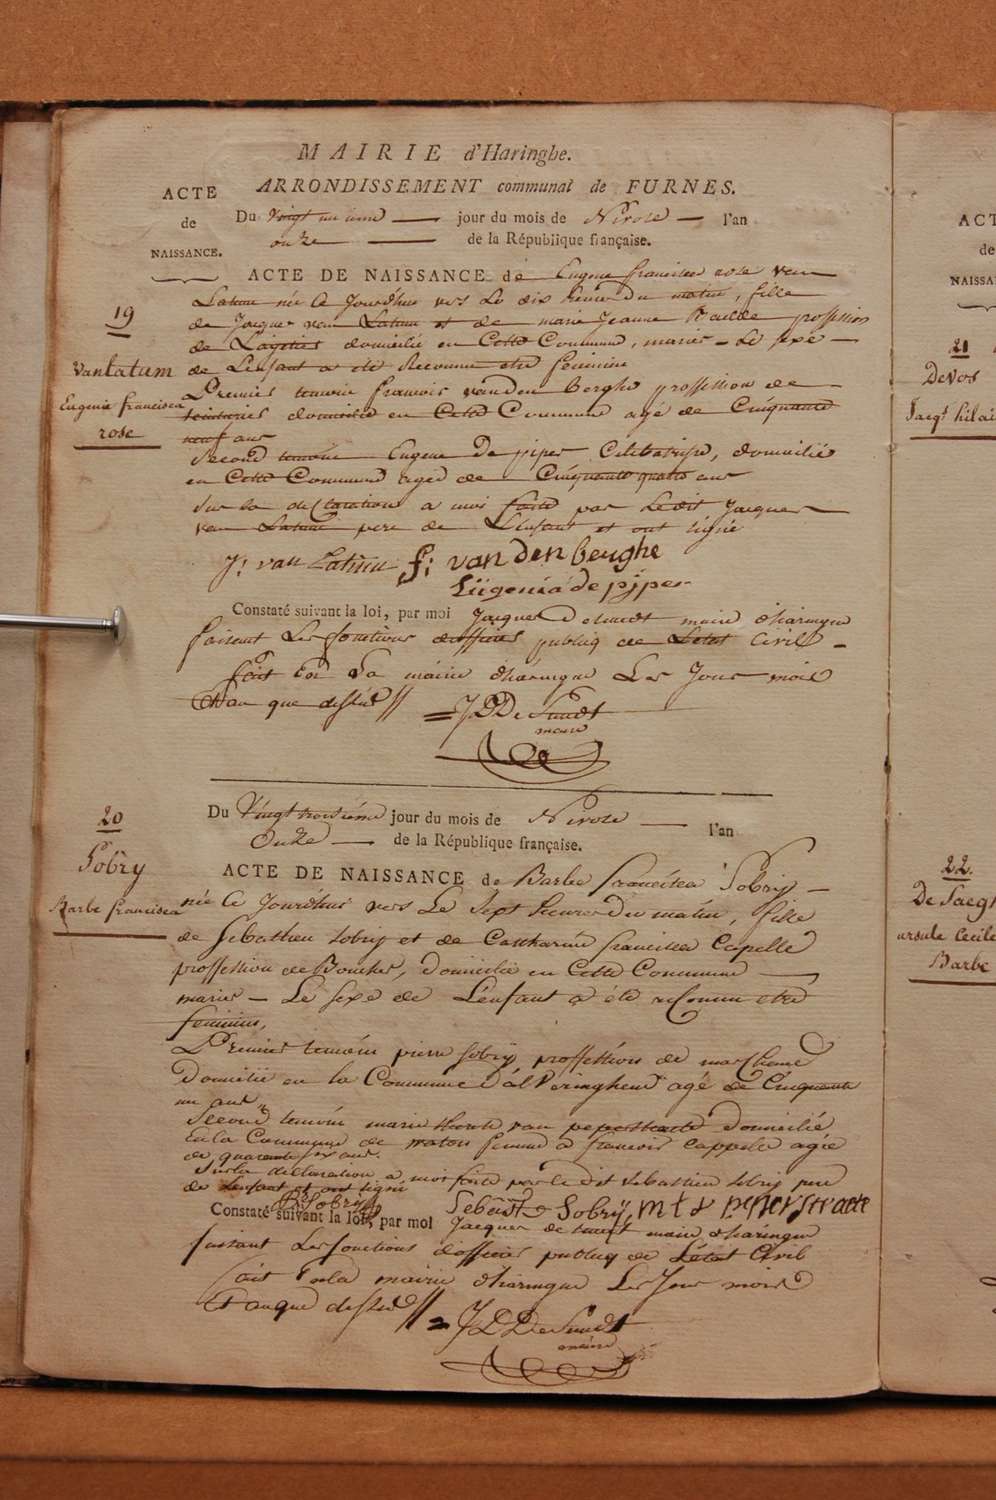 MAIRIE d'Haringhe.
ARRONDISSEMENT communal de FURNES.
ACTE
de
NAISSANCE.
Du Vingt un ieme jour du mois de Nivose l'an
onze de la République française.
ACTE DE NAISSANCE de Eugene francisca rose van
Latum née Ce Jourd'hui vers Le dix heures Du matin, fille
de Jacques van Latum et de marie Jeanne proffession
de domicilié en Cette Commune, mariés - Le sexe
de L'enfant a été Reconnu etre feminine
Premier temoin francois vanden Berghe proffession de
teinturier domicilié en Cette Commune agé de Cinquante
neuf ans
Second temoin Eugene De piper Celibatrise, domicilié
en Cette Commune aged de Cinquante quatre ans
Sur la declaration a moi faite par Ledit Jacques
van Latum pere de L'enfant et ont signé
19
vanLatum
Eugenie francisca
rose
J: van Latum f: van den berghe
Eugenia de pijper
Constaté suivant la loi, par moi Jacques Desmedt maire d'haringue
faisant Les fonctions d'officier publiq de L'état Civil
fait en La mairie d'haringue Les Jour mois
Et an que dessus
JDDe Smedt
maire
20
Sobry
Barbe francisca
Du Vingt troisième jour du mois de Nivose l'an
Onze de la République française.
ACTE DE NAISSANCE de Barbe francisca Sobry
née Ce Jourd'hui vers Le Sept heures Du matin, fille
de Sebastien Sobry et de Catharine francisca Capelle
proffession de Boucher, domicilié en Cette Commune
mariés - Le sexe de L'enfant a été reConnu etre
feminine,
Premier temoin pierre Sobry proffession de marchand
Domicilié en la Commune d'alveringhem agé de Cinquante
un ans
Second temoin marie therese van peperstraete domicilié
En la Commune de watou femme a francois Cappelle agée
de quarante six ans.
Sur la declaration a moi faite par le dit Sebastien Sobry pere
de L'enfant et ont signé
P. Sobry Sebast Sobrÿ m t v peperstraete
Constaté suivant la loi, par moi Jacques de smedt maire d'haringue
faisant Les fonctions d'officier publiq de L'état Civil
fait en la mairie d'haringue Les Jour mois
Et an que dessus
JDDe Smedt
maire
ACT
de
NAISSA
21
Devos
Jacqs hilai
22.
De Jaeg
ursule Cecile
Barbe